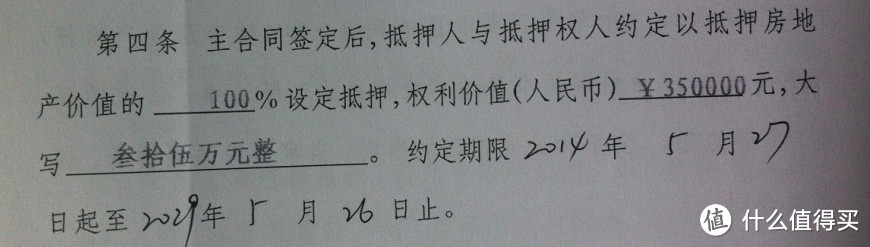 第四条 主合同签定后,抵押人与抵押权人约定以抵押房地
产价值的 100%设定抵押,权利价值(人民币)¥350000元,大
写 叁拾伍万元整 。约定期限 2014 年 5 月 27
日起至 2029 年 5 月 26 日止。
值 什么值得买